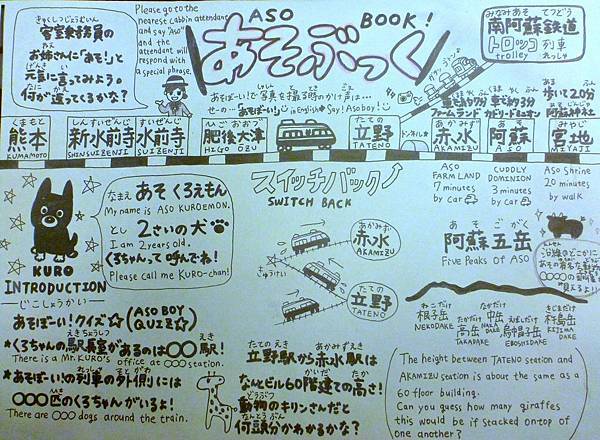 ASO BOOK!
あそぶっく
きゃくしつじょうむいん
客室乗務員の
お姉さんに「あそ!」と
元気に言ってみよう。
何が返ってくるかな?
Please go to the
nearest cabbin attendant
and say "Aso"
and the
attendant will
respond with
a special phrase.
あそぼーい!で写真を撮る時のかけ声は…
せーの…「あそぼーい!」
in English Say! Aso boy!
みなみあそ てつどう
南阿蘇鉄道
トロッコ列車
trolley れっしゃ
車で約7分
ファームランド
車で約3分
カドリー・ドミニオン
歩いて20分
阿蘇神社
くまもと
熊本
KUMAMOTO
しんすいぜんじ
新水前寺
SHINSUIZENJI
すいぜんじ
水前寺
SUIZENJI
ひごおおづ
肥後大津
HIGO OZU
たての
立野
TATENO
トンネル
あかみず
赤水
AKAMIZU
あそ
阿蘇
ASO
みやじ
宮地
MIYAJI
ASO
FARM LAND
7 minutes
by car
CUDDLY
DOMINION
3 minutes
by car
ASO Shrine
20 minutes
by walk
KURO
INTRODUCTION
じこしょうかい
なまえ あそ くろえもん
My name is ASO KUROEMON.
とし 2さいの犬
I am 2 years old.
くろちゃんって呼んでね!
Please call me KURO-chan!
スイッチバック
SWITCH BACK
あかみず
赤水
AKAMIZU
たての
立野
TATENO
あそごがく
阿蘇五岳
Five Peaks of ASO
沿線のどこかに
あその有名な動物
○○○の
が見えるよ!
ねこだけ
根子岳
NEKODAKE
たかだけ
高岳
TAKADAKE
なかだけ
中岳
NAKADAKE
えぼしだけ
烏帽子岳
EBOSHIDAKE
きじまだけ
杵島岳
KIJIMADAKE
あそぼーい!クイズ☆
(ASO BOY QUIZ☆)
★くろちゃんの駅長室があるのは○○駅!
There is a Mr.KURO's office at ○○○ station.
★あそぼーい!の列車の外側には
○○○匹のくろちゃんがいるよ!
There are ○○○ dogs around the train.
立野駅から赤水駅は
なんとビル60階建ての高さ!
動物のキリンさんだと
何頭分かわかるかな?
The height between TATENO station and
AKAMIZU station is about the same as a
60 floor building.
Can you guess how many giraffes
this would be if stacked on top of
one another?